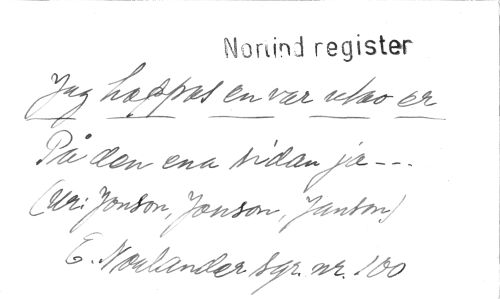 Norlind register
Jag hoppas en var utav er
På den ena sidan ja---
(Ur: Jonson, Jonson, Janson)
E. Norlander sgr. nr. 100